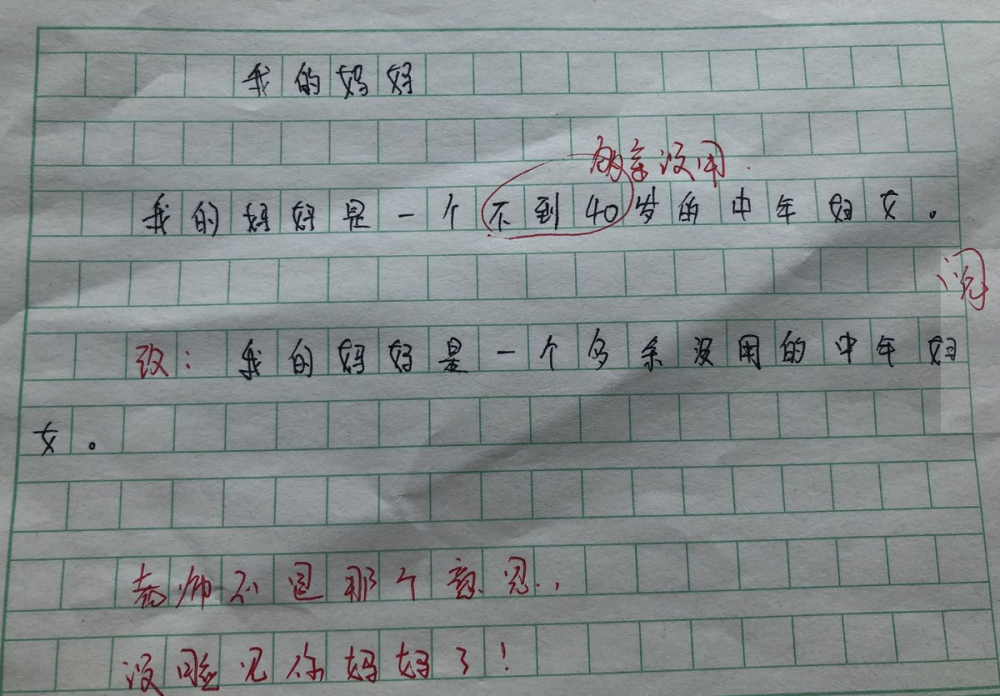 我的妈妈
多余没用.
我的妈妈是一个不到40岁的中年妇女。
阅
改：我的妈妈是一个多余没用的中年妇
女。
老师不是那个意思..
没脸见你妈妈了！